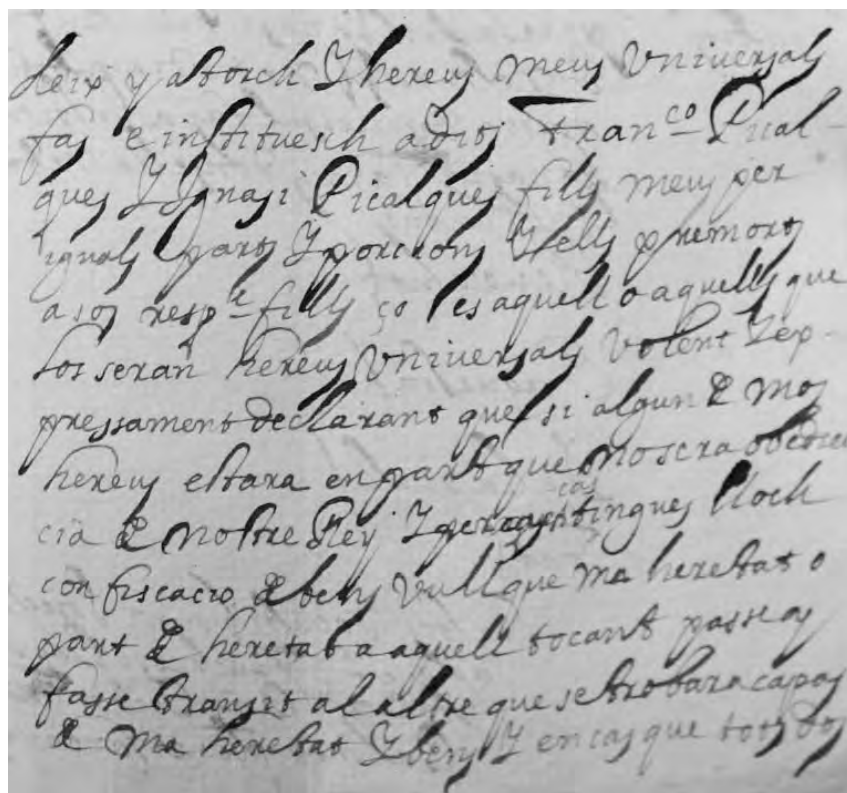 deix y atorch I hereus meus Universals
fas e instituesch a dits Fran.co Pical-
ques I Ignasi Picalques fills meus per
iguals parts I porcions I ells premorts
a sos resp.e fills ço es aquell o aquells que
los seran hereus Universals Volent I ex-
pressament declarant que si algun de mos
hereus estara en part que no sera obedien
cia de nostre Rey I per cas tingues lloch
confiscacio de bens Vull que ma heretat o
part de heretat a aquell tocant passe o
fasse transit al altre que se trobara capas
de ma heretat I bens I en cas que tots dos